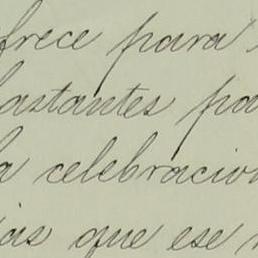 frece para
bastantes pa
la celebracion
ias que ese